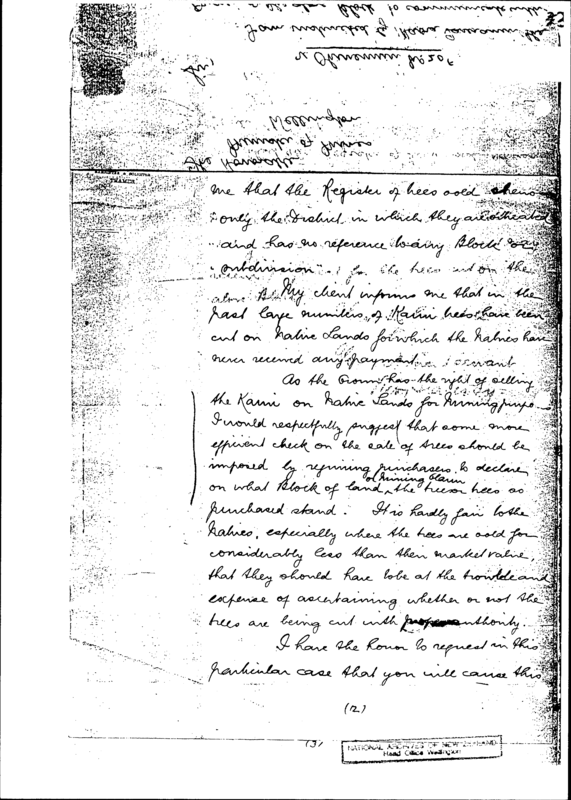 32
me that the Register of trees sold shews
only the District in which they are situated
and has no reference to any Block or
subdivision for the trees cut on the
My client informs me that in the
past large numbers of Kauri trees have been
cut on Native Lands for which the Natives have
never received any payment
As the Crown has the right of selling
the Kauri on Native Lands for Mining purpo
I would respectfully suggest that some more
efficient check on the sale of trees should be
imposed by requiring purchasers to declare
on what Block of land or Mining Claim the tree or trees so
purchased stand. It is hardly fair to the
Natives, especially where the trees are sold for
considerably less than their market value,
that they should have to be at the trouble and
expense of ascertaining whether or not the
trees are being cut with authority.
I have the honor to request in this
particular case that you will cause this
(2)
(3)
NATIONAL ARCHIVES OF NEW ZEALAND
Head Office Wellington
The Honorable
Minister of
Wellington
Sir,
I am instructed by